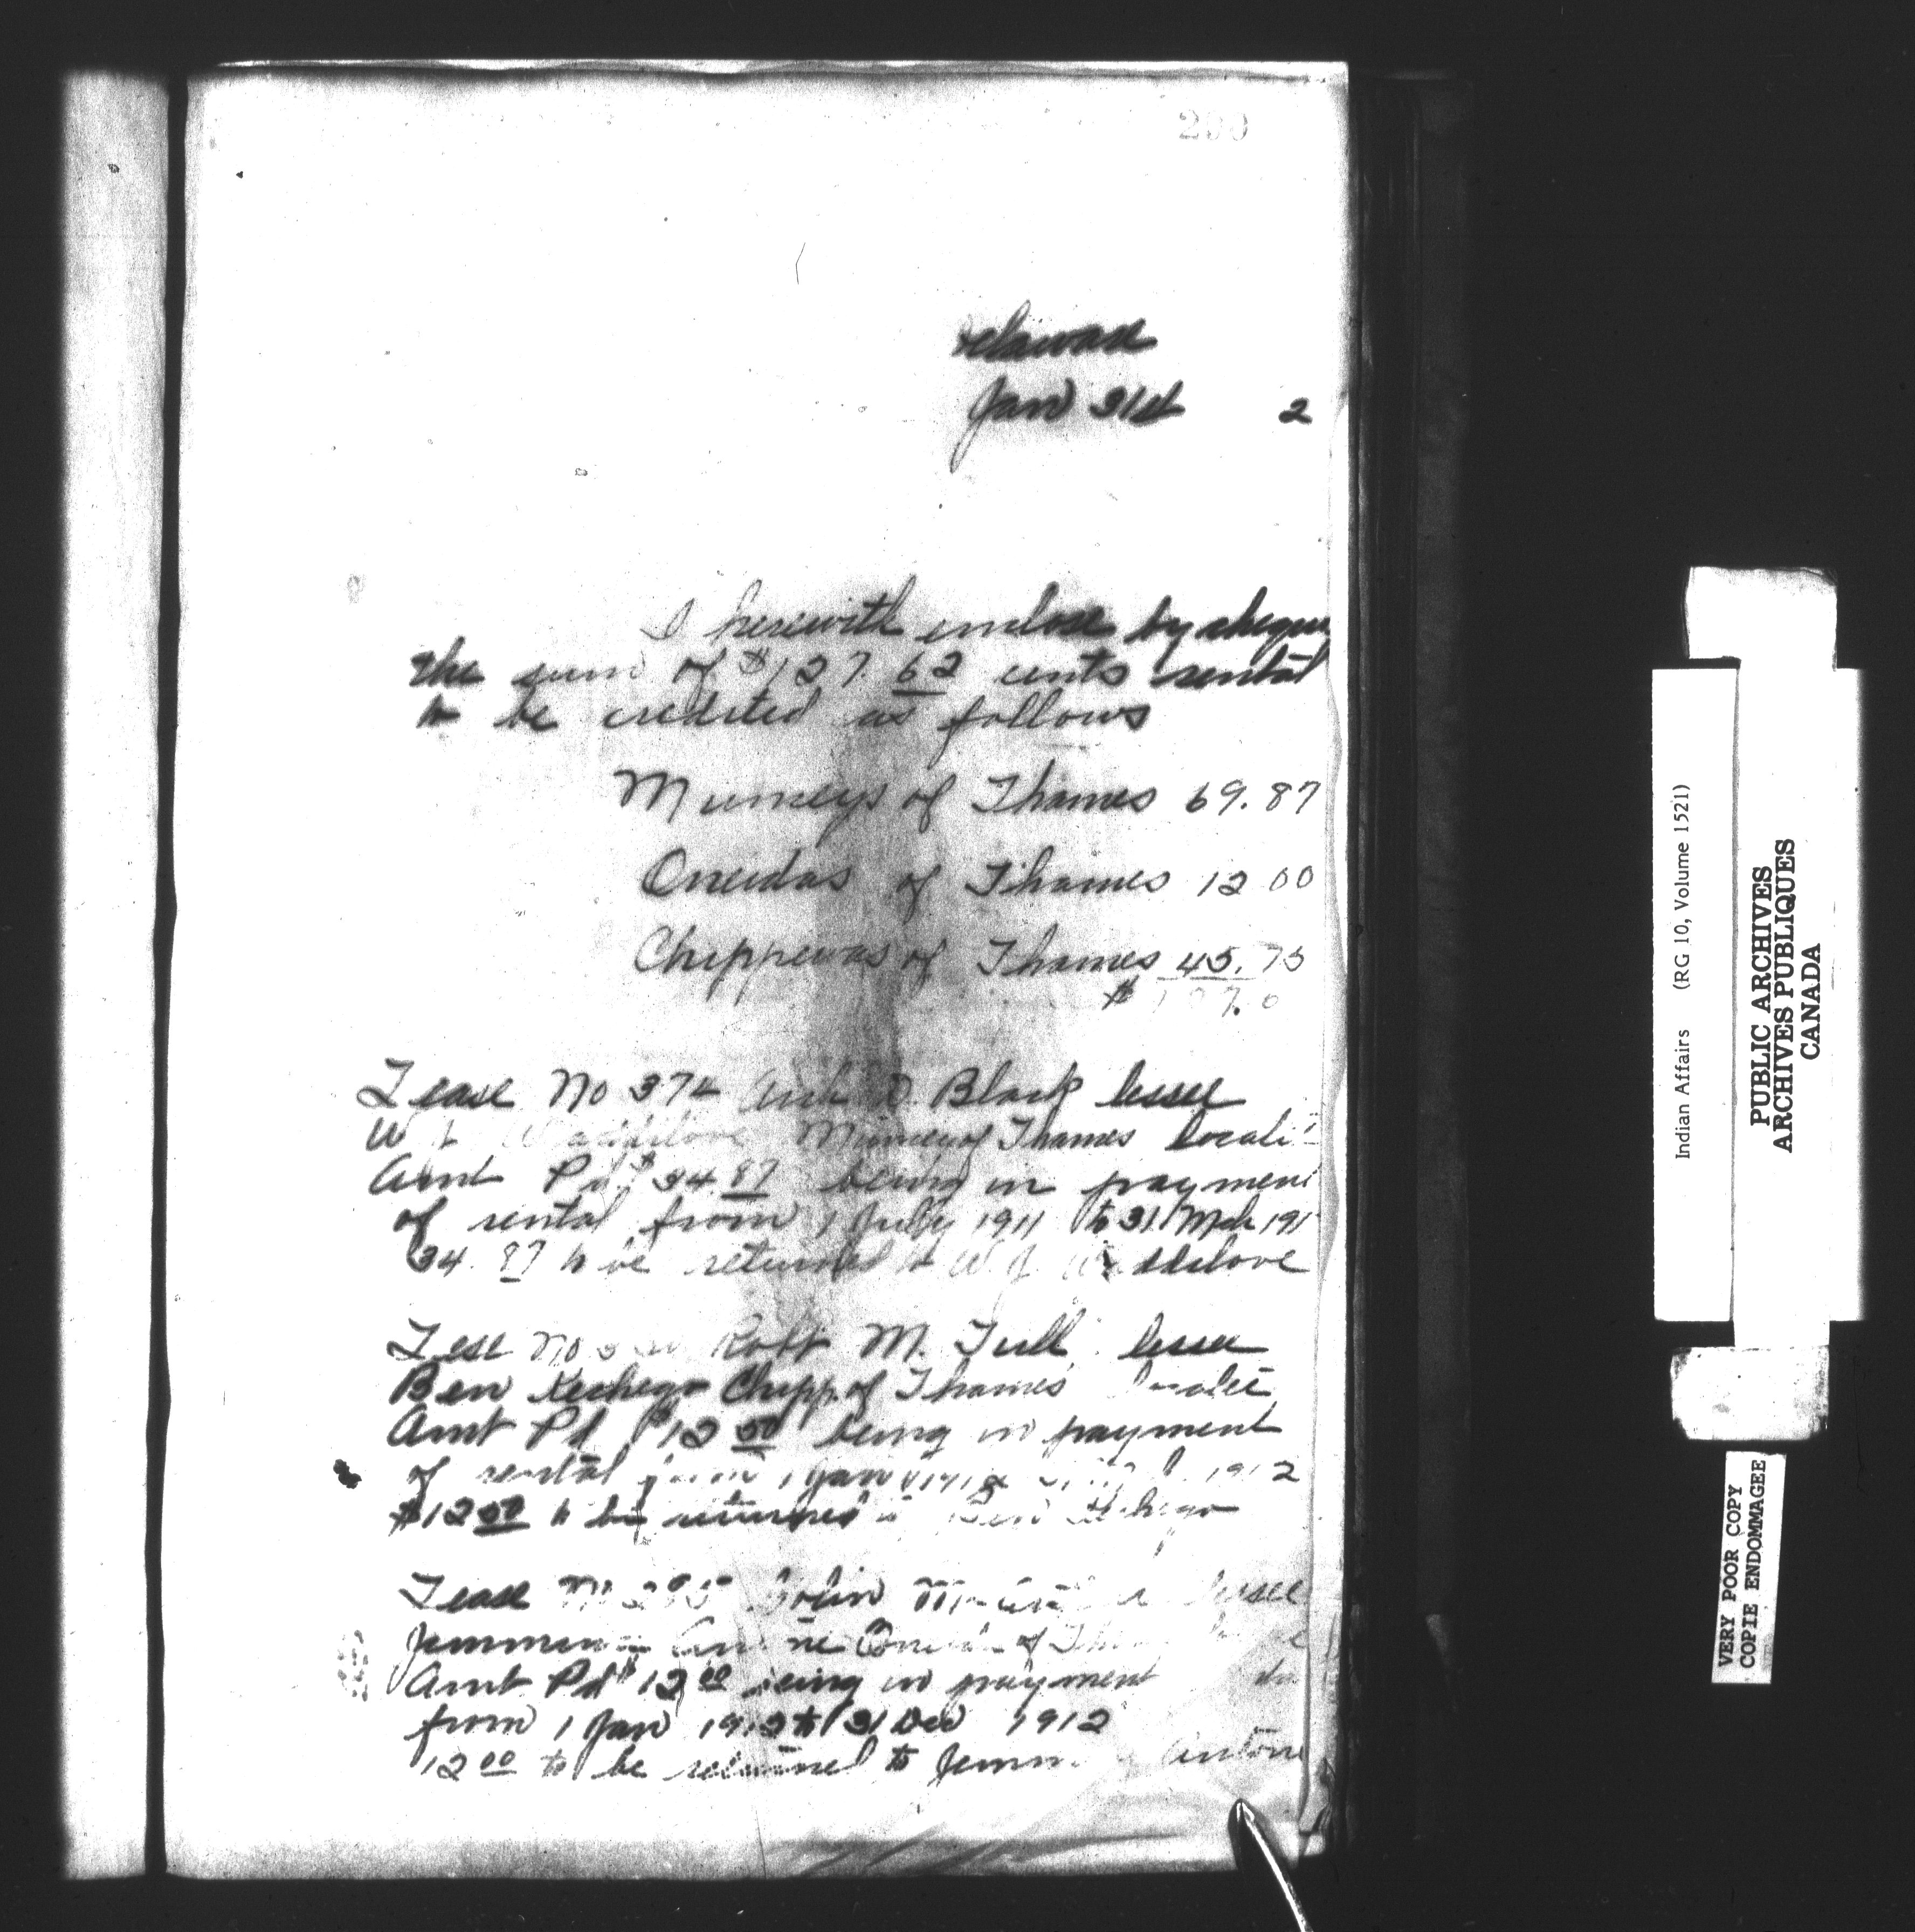 290
Jan 31st 2
I herewith enclose by cheque
the sum of $127.62 cents rental
to be credited as follows
Munceys of Thames 69.87
Oneidas of Thames 12 00
Chippewas of Thames 45.75
$
Lease No 374 Arch D. Black lessee
W J Waddilove Munceyof Thames locati
Amt Pd $34.87 being in payment
of rental from 1 July 1911 to 31 Mch 191
34.87 to be returned to W J Waddilove
Lese No Robt M. Tull lessee
Ben Kechego Chipp. of Thames locatee
Amt Pd $12 50 being in payment
of rental from 1 Jan 1912
$12 50 to be returned Ben Kechego
Lease No 295 John lessee
of
Amt Pd $12 00 being in payment
from 1 Jan 1912 to 31 Dec 1912
12 00 to be returned to Antone
Indian Affairs (RG 10, Volume 1521)
PUBLIC ARCHIVES
ARCHIVES PUBLIQUES
CANADA
VERY POOR COPY
COPIE ENDOMMAGEE